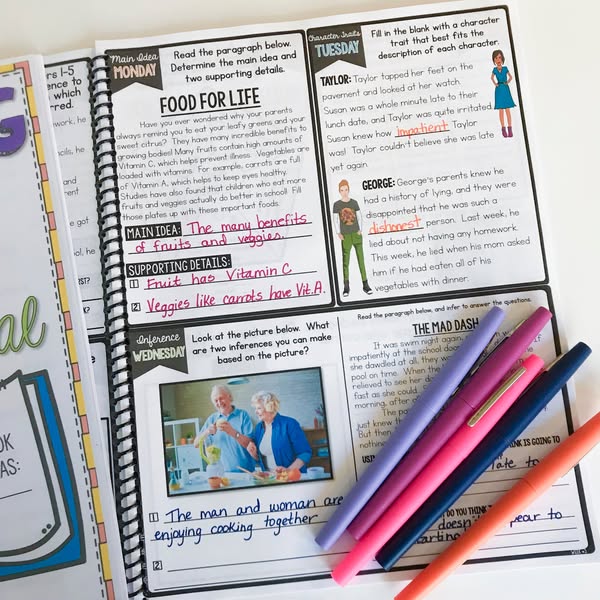 Main Idea
MONDAY
Read the paragraph below.
Determine the main idea and
two supporting details.
FOOD FOR LIFE
Have you ever wondered why your parents
always remind you to eat your leafy greens and your
sweet citrus? They have many incredible benefits to
growing bodies! Many fruits contain high amounts of
Vitamin C, which helps prevent illness. Vegetables are
loaded with vitamins. For example, carrots are full
of Vitamin A, which helps to keep eyes healthy.
Studies have also found that children who eat more
fruits and veggies actually do better in school! Fill
those plates up with these important foods.
MAIN IDEA: The many benefits
of fruits and veggies.
SUPPORTING DETAILS:
1 Fruit has Vitamin C
2 Veggies like carrots have Vit. A.
Character Traits
TUESDAY
Fill in the blank with a character
trait that best fits the
description of each character.
TAYLOR: Taylor tapped her feet on the
pavement and looked at her watch.
Susan was a whole minute late to their
lunch date, and Taylor was quite irritated.
Susan knew how impatient Taylor
was! Taylor couldn't believe she was late
yet again.
GEORGE: George's parents knew he
had a history of lying, and they were
disappointed that he was such a
dishonest person. Last week, he
lied about not having any homework.
This week, he lied when his mom asked
him if he had eaten all of his
vegetables with dinner.
Inference
WEDNESDAY
Look at the picture below. What
are two inferences you can make
based on the picture?
1 The man and woman are
enjoying cooking together
2
Read the paragraph below, and infer to answer the questions.
THE MAD DASH
It was swim night again,
impatiently at the school
she dawdled at all, they
pool on time. When the
relieved to see her
fast as she could.
morning, after
The
just knew
But then
nothing
THINK IS GOING TO
late to
DO YOU THINK
doesn't
to